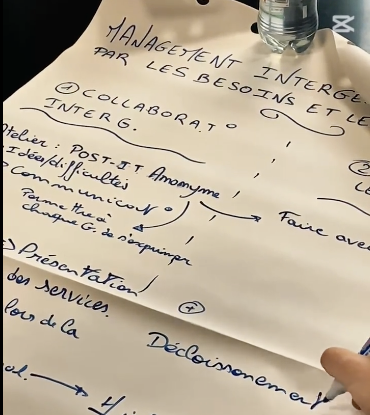 MANAGEMENT INTERGE
PAR LES BESOINS ET LE
① COLLABORAT°
INTERG.
②
LE
Atelier : POST-IT Anonyme
Idées/difficultés
Communicat°
Permettre à
chaque G. de s'exprimer
Faire avec
Présentation
des services.
lors de la
+
Décloisonnement